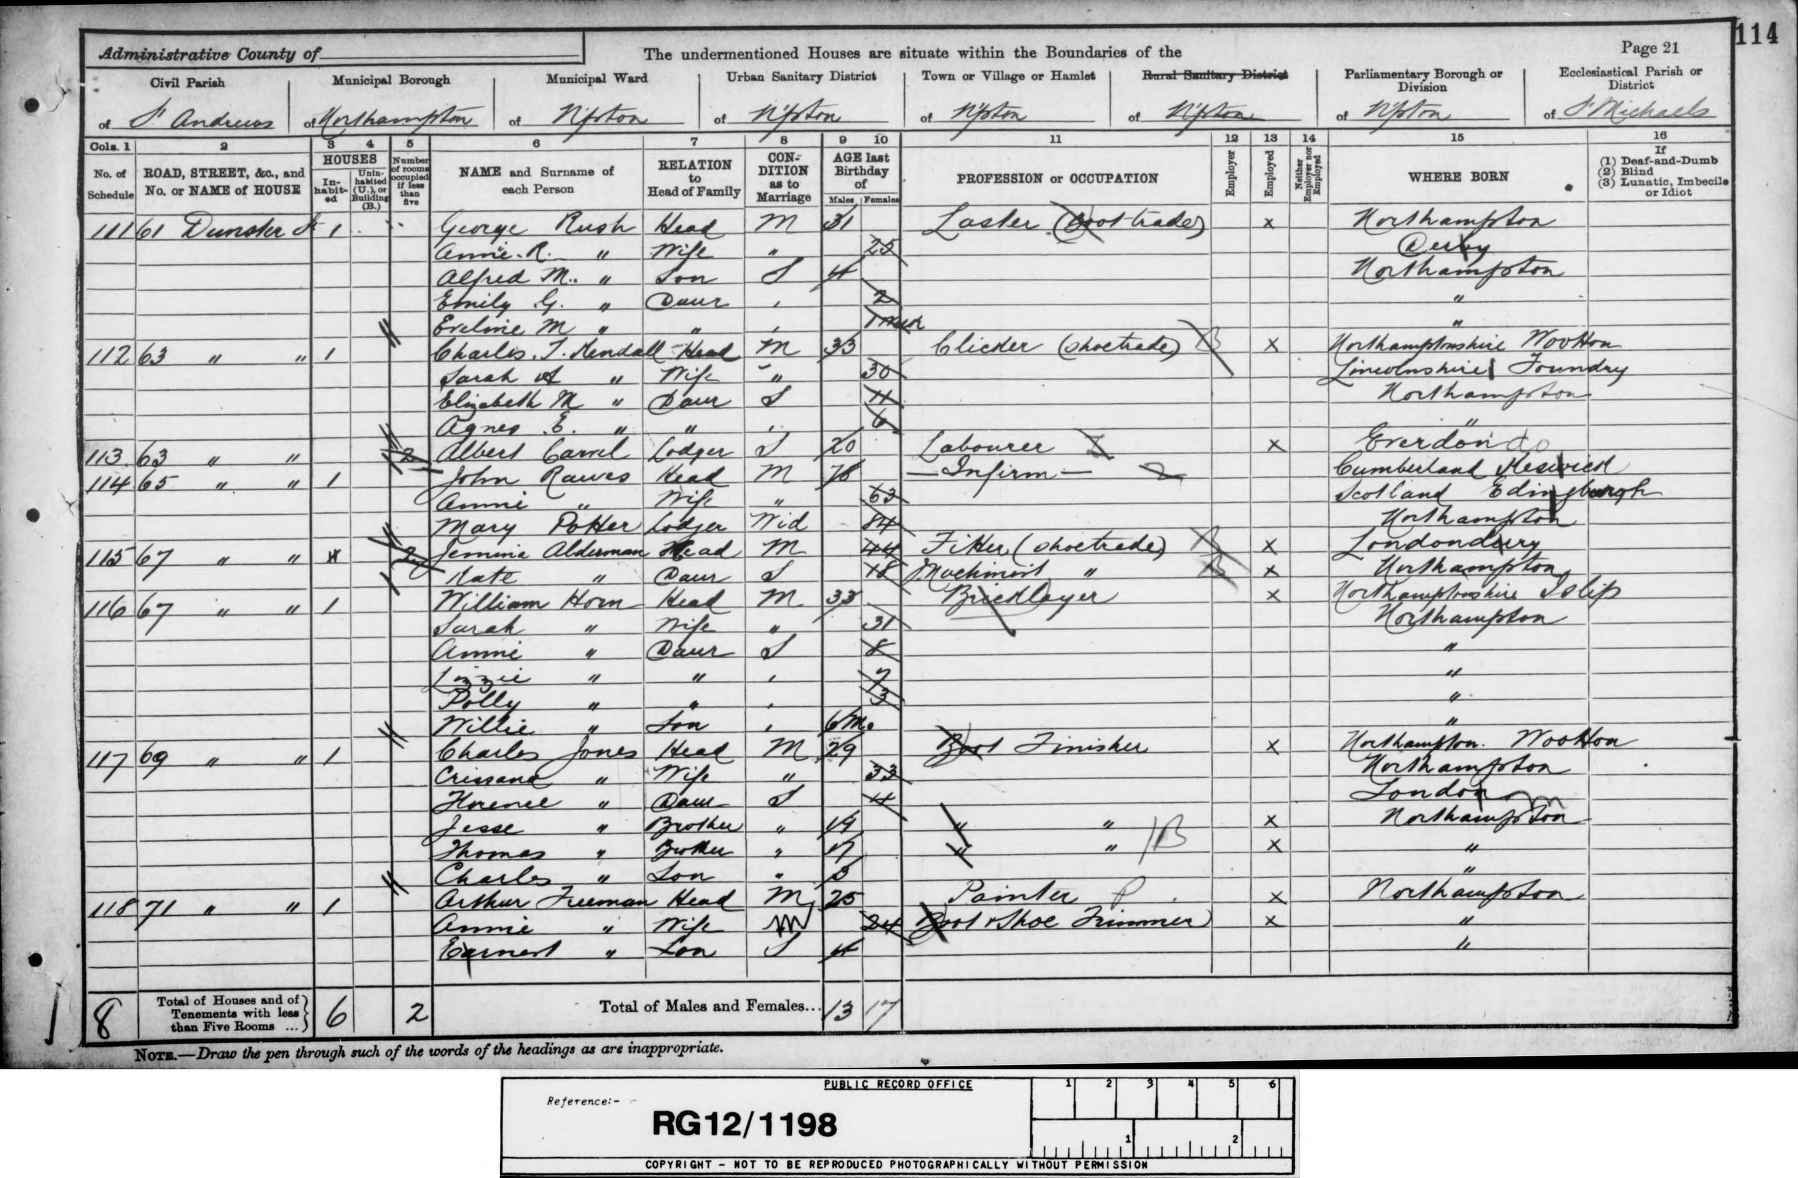 114
Administrative County of
The undermentioned Houses are situate within the Boundaries of the
Page 21
Civil Parish | Municipal Borough | Municipal Ward | Urban Sanitary District | Town or Village or Hamlet | Rural Sanitary District | Parliamentary Borough or Division | Ecclesiastical Parish or District
of St Andrews | of Northampton | of N'pton | of N'pton | of N'pton | of N'pton | of N'pton | of St Michaels
Cols. 1 | 2 | 3 | 4 | 5 | 6 | 7 | 8 | 9 | 10 | 11 | 12 | 13 | 14 | 15 | 16
No. of Schedule | ROAD, STREET, &c., and No. or NAME of HOUSE | HOUSES In-habit-ed | Unin-habited (U.), or Building (B.) | Number of rooms occupied if less than five | NAME and Surname of each Person | RELATION to Head of Family | CON-DITION as to Marriage | AGE last Birthday of Males | Females | PROFESSION or OCCUPATION | Employer | Employed | Neither Employer nor Employed | WHERE BORN | If (1) Deaf-and-Dumb (2) Blind (3) Lunatic, Imbecile or Idiot
111 61 Dunster St 1 George Rush Head M 31 Laster (Boot trade) x Northampton
Annie R. " Wife " 25 Derby
Alfred M. " Son S 4 Northampton
Emily G. " Daur " 2 "
Eveline M " " " 1 mth "
112 63 " " 1 Charles T. Kendall Head M 33 Clicker (shoe trade) B x Northamptonshire Wootton
Sarah A " Wife " 30 Lincolnshire Foundry
Elizabeth M " Daur S 11 Northampton
Agnes E. " " " 6 "
113 63 " " 2 Albert Lodger S 20 Labourer x Everdon do
114 65 " " 1 John Rawes Head M 78 — Infirm — Cumberland Keswick
Annie " Wife " 63 Scotland Edingburgh
Mary Potter Lodger Wid 84 Northampton
115 67 " " 2 Jemima Alderman Head M 44 Fitter (shoe trade) B x Londonderry
Kate " Daur S 18 Machinist " B x Northampton
116 67 " " 1 William Horn Head M 33 Bricklayer x Northamptonshire Islip
Sarah " Wife " 31 Northampton
Annie " Daur S 8 "
Lizzie " " " 7 "
Polly " " " 3 "
Willie " Son " 6 M. "
117 69 " " 1 Charles Jones Head M 29 Boot Finisher x Northampton. Wootton
Crissana " Wife " 33 Northampton
Florence " Daur S 4 London
Jesse " Brother " 19 " " x Northampton
Thomas " Brother " 17 " " B x "
Charles " Son " 3 "
118 71 " " 1 Arthur Freeman Head M 25 Painter P x Northampton
Annie " Wife M 24 Boot & Shoe Trimmer x "
Earnest " Son S 4 "
8 Total of Houses and of Tenements with less than Five Rooms ... 6 2 Total of Males and Females... 13 17
NOTE.—Draw the pen through such of the words of the headings as are inappropriate.
PUBLIC RECORD OFFICE
1 2 3 4 5 6
Reference:-
RG12/1198
1 2
COPYRIGHT - NOT TO BE REPRODUCED PHOTOGRAPHICALLY WITHOUT PERMISSION